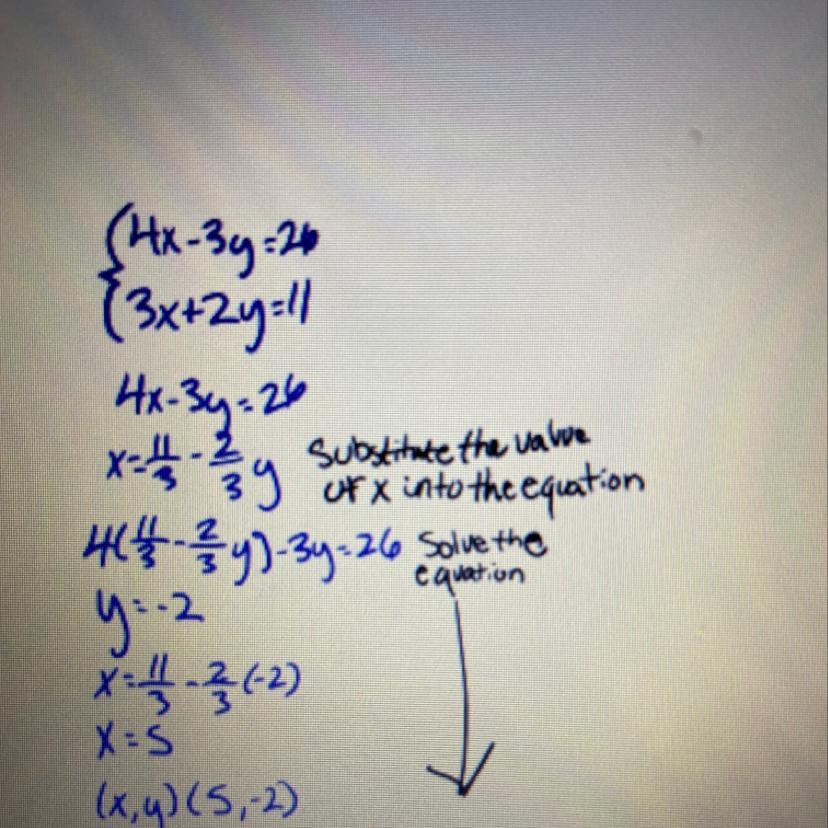 4x-3y=26
3x+2y=11
4x-3y=26
x=11/3-2/3y Substitute the value
of x into the equation
4(11/3-2/3y)-3y=26 Solve the
equation
y=-2
x=11/3-2/3(-2)
x=5
(x,y)(5,-2)